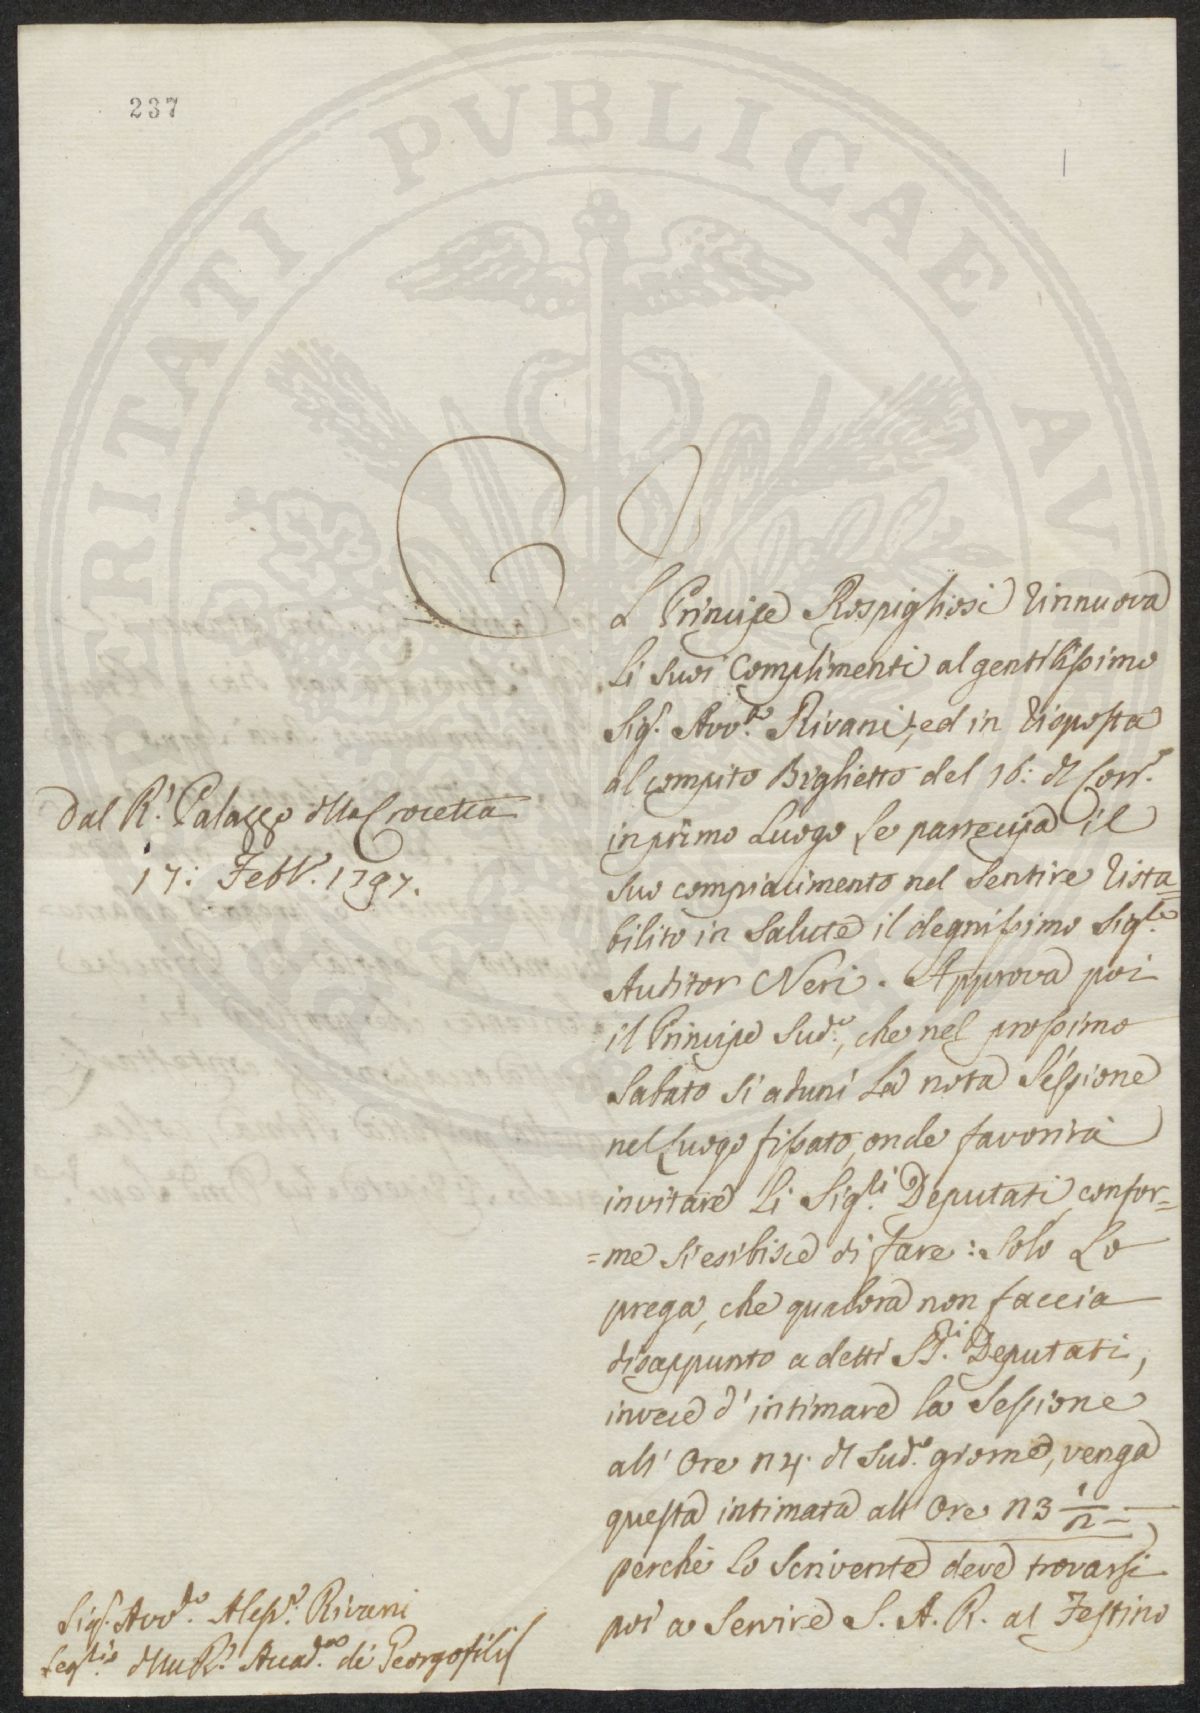 237
PROSPERITATI PUBLICAE AUG
Dal R.l Palazzo della Crocetta
17: Febb.o 1797.
Il Principe Rospigliosi rinnuova
li suoi Complimenti al gentilissimo
Sig.r Avv.to Rivani, ed in risposta
al compito Biglietto del 16: del Corr.e
in primo Luogo Le partecipa il
suo compiacimento nel sentire rista=
bilito in salute il degnissimo Sig.re
Auditor Neri. Approva poi
il Principe Sud.o, che nel prossimo
Sabato si aduni la nota Sessione
nel Luogo fissato, onde favorirà
invitare li Sig.ri Deputati, confor=
=me si esibisce di fare: Solo Lo
prega, che qualora non faccia
disappunto a detti SS.ri Deputati,
invece d'intimare la Sessione
all'Ore 24. del Sud.o giorno, venga
questa intimata all'Ore 23 1/2
perchè lo Scrivente deve trovarsi
poi a Servire S. A. R. al Festino
Sig.r Avv.to Aless.o Rivani
Seg.rio della R.l Accad.a dei Georgofili